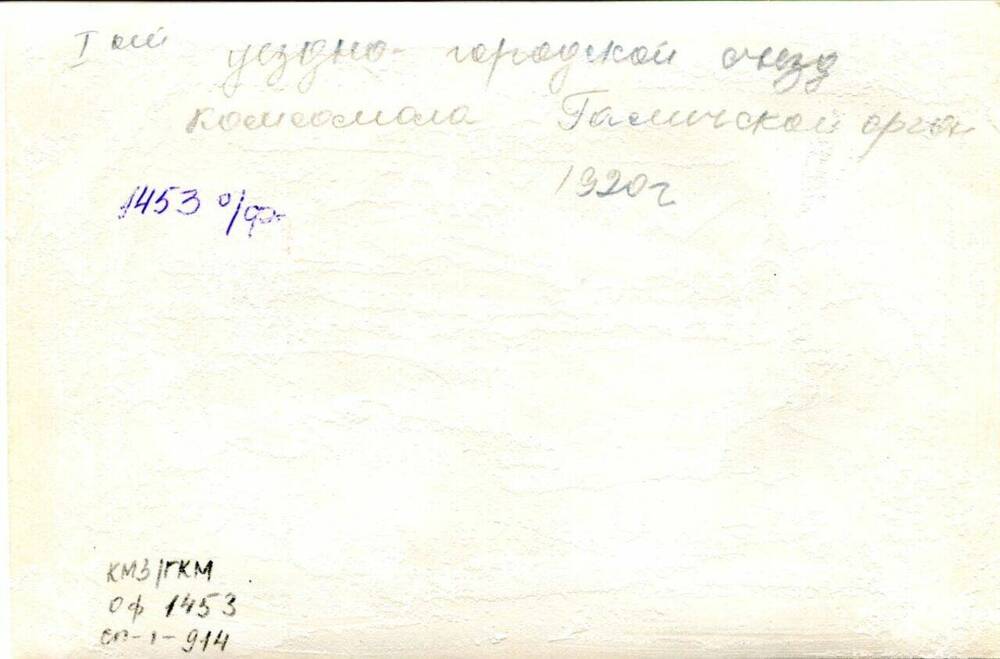 I ый уездно-городской съезд
комсомола Галичской орган
1920г
1453 о/ф
КМЗ/ГКМ
оф 1453
сп-1-914